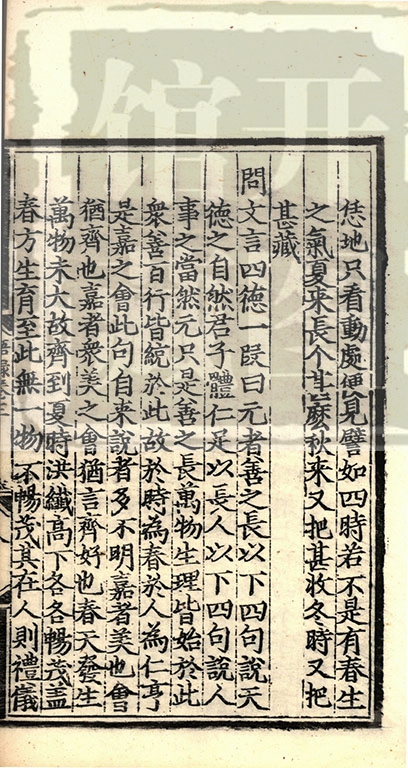 恁地只看動處便見譬如四時若不是有春生
之氣夏來長个甚麽秋來又把甚收冬時又把
甚藏
問文言四德一段曰元者善之長以下四句說天
德之自然君子體仁足以長人以下四句說人
事之當然元只是善之長萬物生理皆始於此
衆善百行皆統於此故於時為春於人為仁亨
是嘉之會此句自来說者多不明嘉者美也會
猶齊也嘉者衆美之會猶言齊好也春天發生
萬物未大故齊到夏時洪纖高下各各暢茂蓋
春方生育至此無一物不暢茂其在人則禮儀